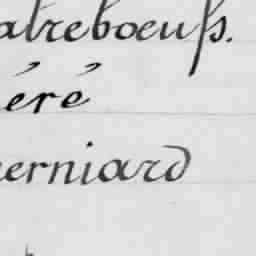 atreboeufs.
éré
erniard